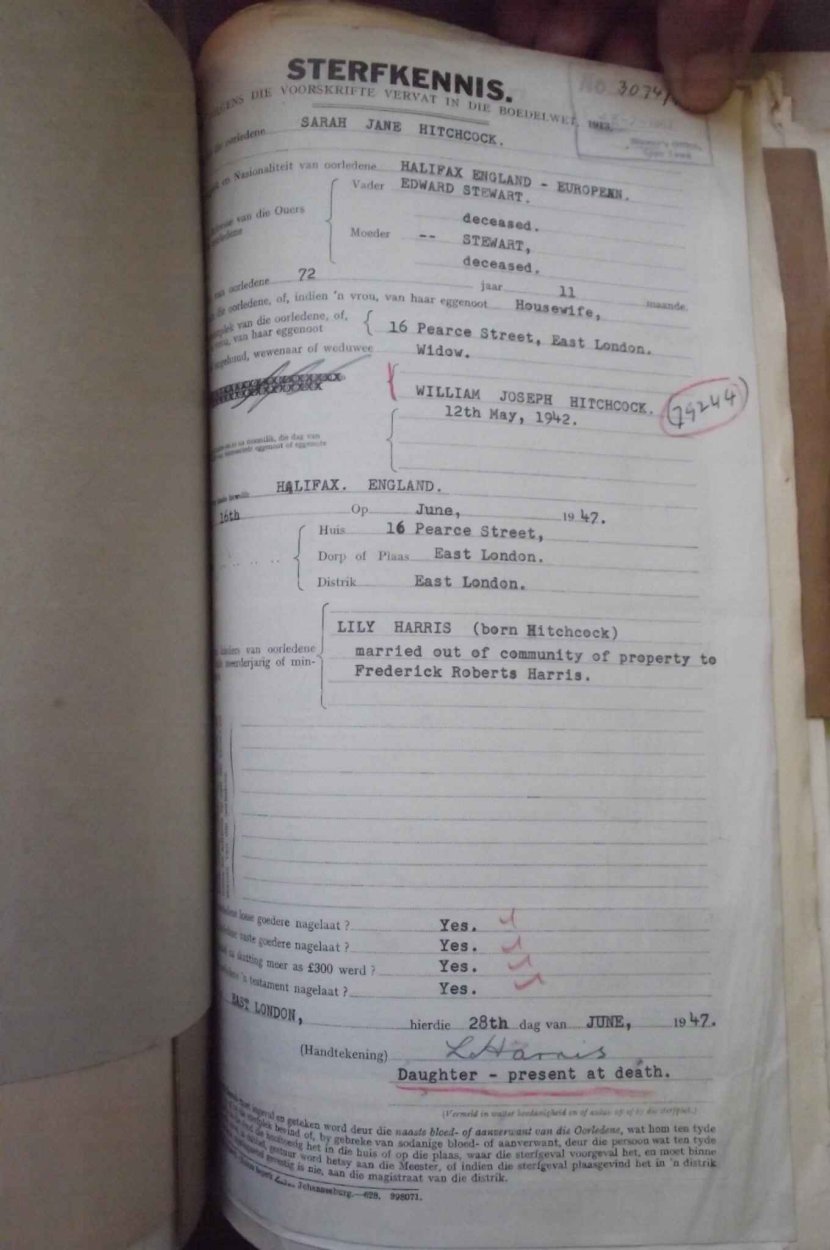 STERFKENNIS.
DIE VOORSKRIFTE VERVAT IN DIE BOEDELWET, 1913.
No. 3074/
die oorledene SARAH JANE HITCHCOCK.
en Nasionaliteit van oorledene HALIFAX ENGLAND - EUROPEAN.
van die Ouers
Vader EDWARD STEWART.
deceased.
Moeder -- STEWART,
deceased.
van oorledene 72 jaar 11 maande.
die oorledene, of, indien 'n vrou, van haar eggenoot Housewife,
van die oorledene, of, vrou, van haar eggenoot 16 Pearce Street, East London.
wewenaar of weduwee Widow.
WILLIAM JOSEPH HITCHCOCK. 79244
12th May, 1942.
HALIFAX. ENGLAND.
16th Op June, 1947.
Huis 16 Pearce Street,
Dorp of Plaas East London.
Distrik East London.
LILY HARRIS (born Hitchcock)
van oorledene
meerderjarig of min-
married out of community of property to
Frederick Roberts Harris.
losse goedere nagelaat ? Yes.
vaste goedere nagelaat ? Yes.
meer as £300 werd ? Yes.
'n testament nagelaat ? Yes.
EAST LONDON, hierdie 28th dag van JUNE, 1947.
(Handtekening) L Harris
Daughter - present at death.
(Vermeld in watter hoedanigheid en of aldan of nie by die sterfplek.)
en geteken word deur die naaste bloed- of aanverwant van die Oorledene, wat hom ten tyde
bevind of, by gebreke van sodanige bloed- of aanverwant, deur die persoon wat ten tyde
het in die huis of op die plaas, waar die sterfgeval voorgeval het, en moet binne
gestuur word hetsy aan die Meester, of indien die sterfgeval plaasgevind het in 'n distrik
gevestig is nie, aan die magistraat van die distrik.
Johannesburg.—628. 398071.